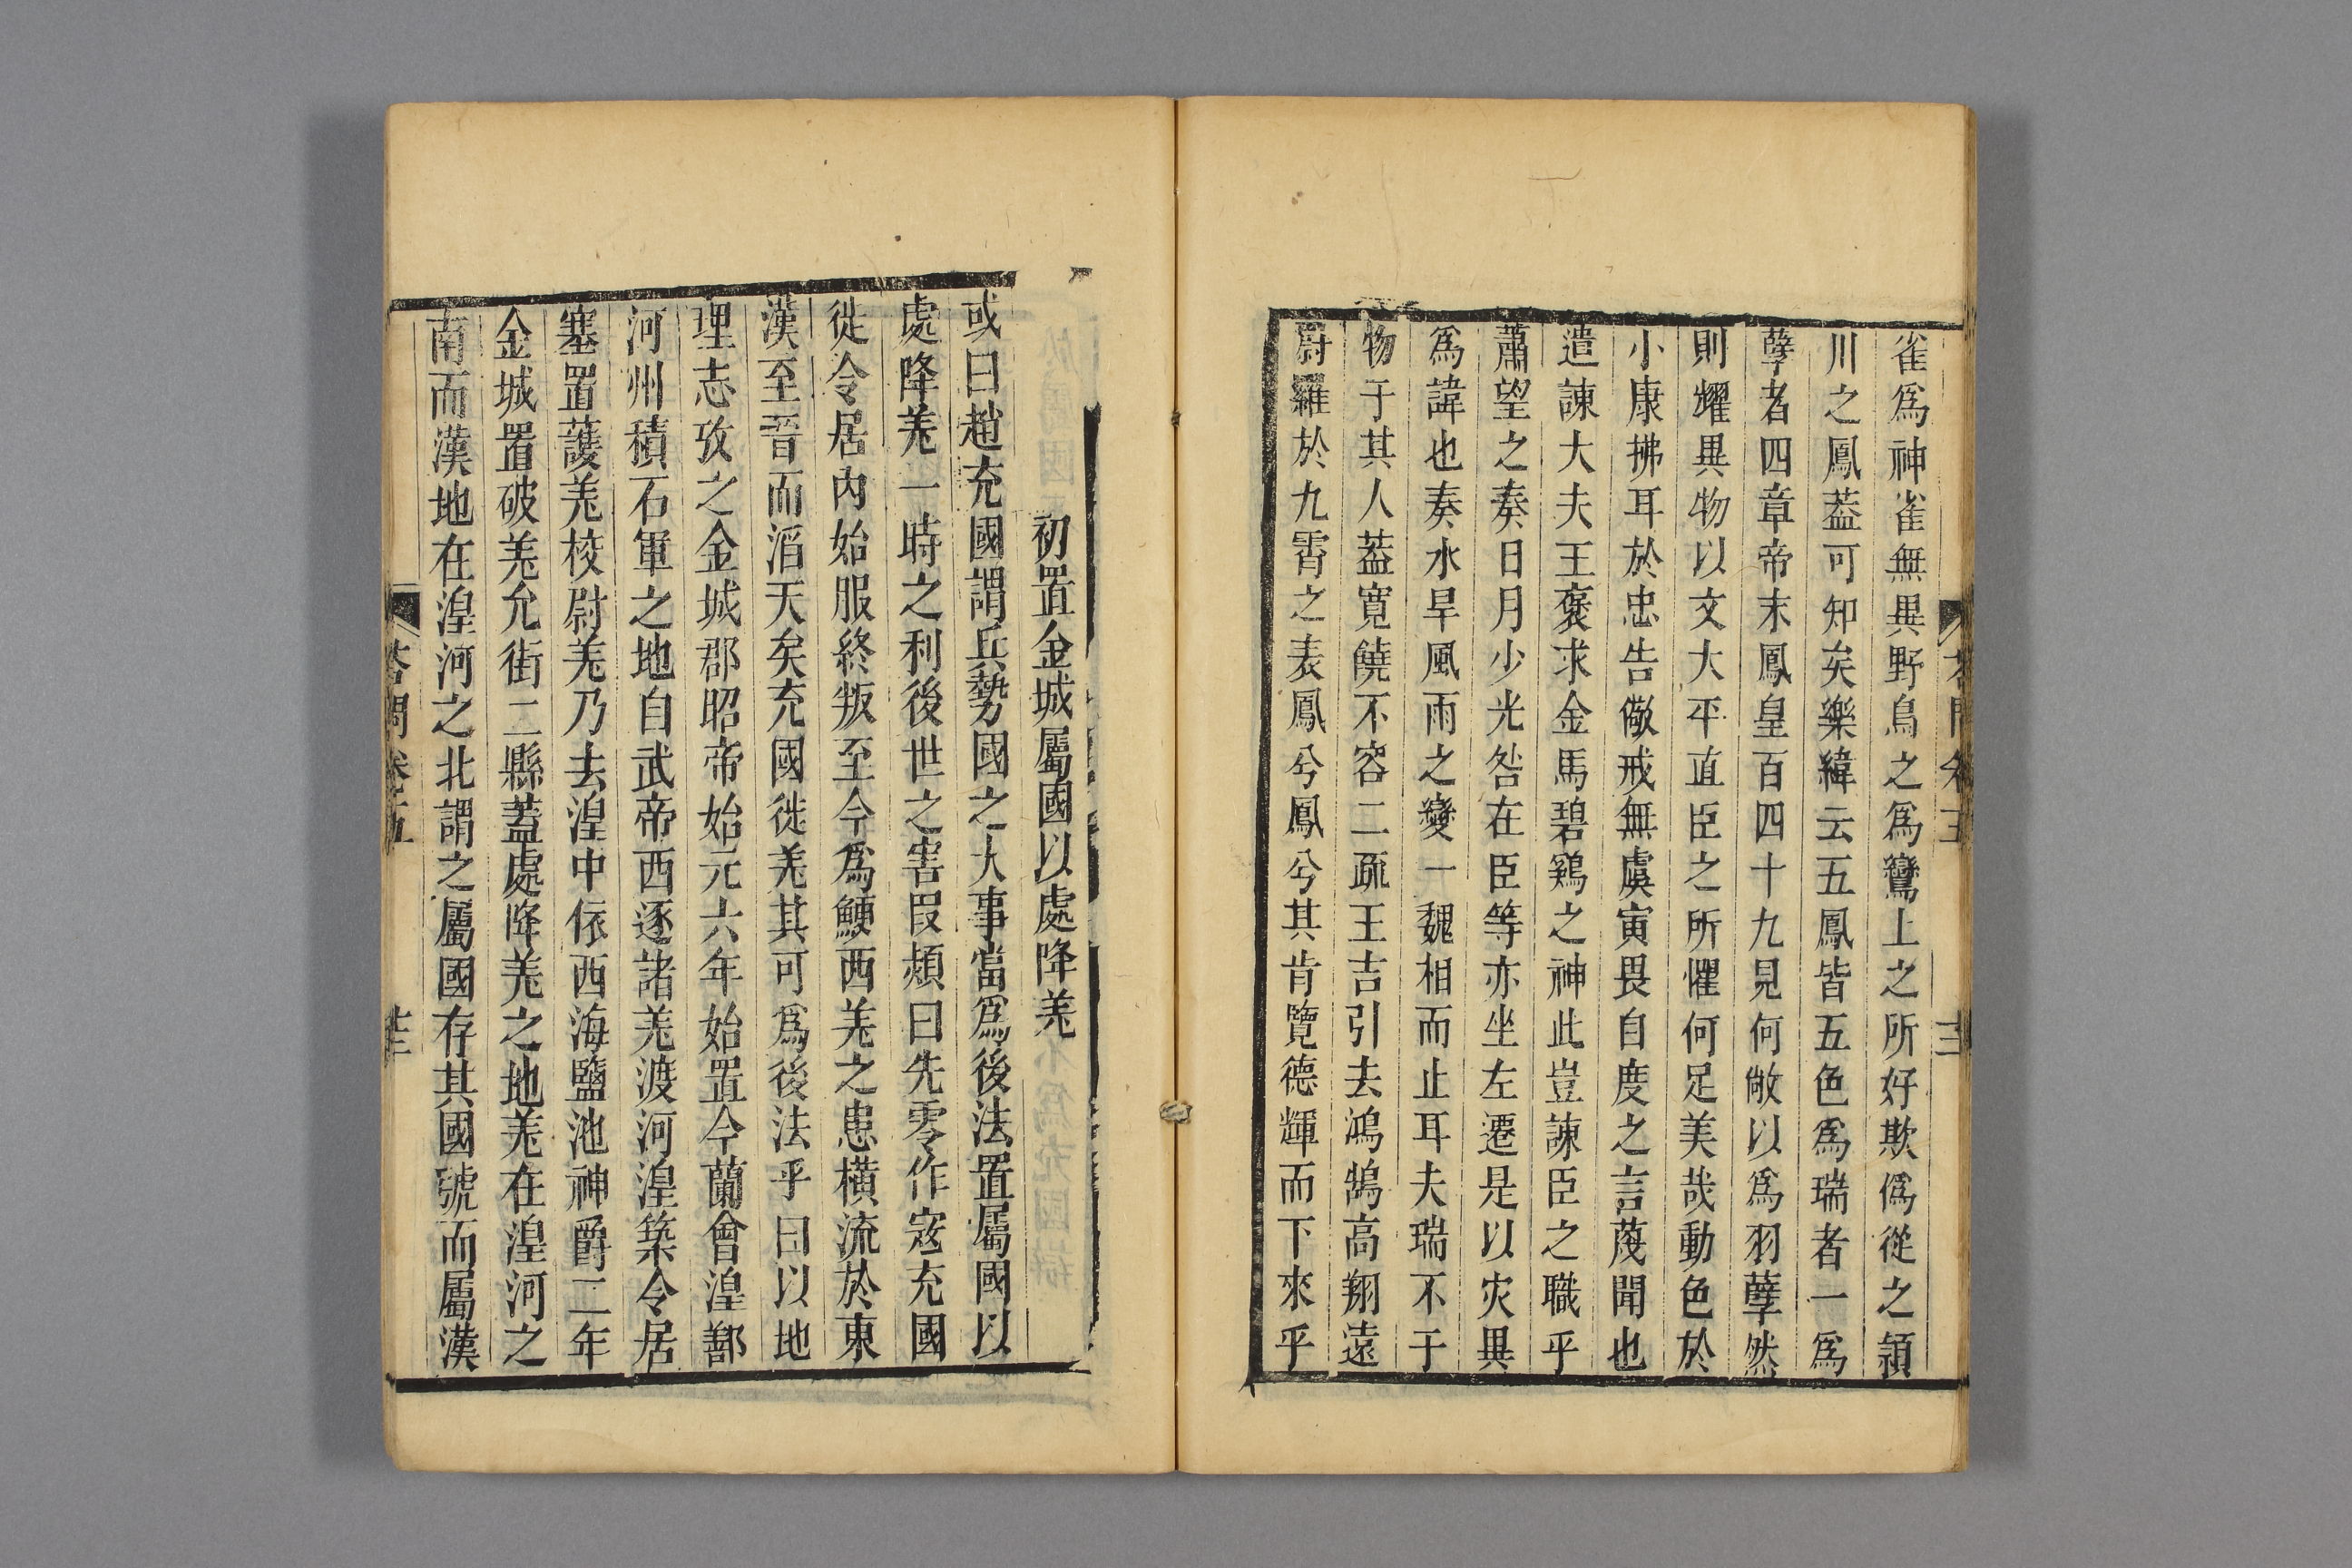 雀爲神雀無異野鳥之爲鸞上之所好欺僞從之潁
川之鳳葢可知矣樂緯云五鳳皆五色爲瑞者一爲
孽者四章帝末鳳皇百四十九見何敞以爲羽孽然
則燿異物以文大平直臣之所懼何足美哉動色於
小康拂耳於忠告儆戒無虞寅畏自度之言蔑聞也
遣諫大夫王褒求金馬碧鷄之神此豈諫臣之職乎
蕭望之奏日月少光咎在臣等亦坐左遷是以灾異
爲諱也奏水旱風雨之變一魏相而止耳夫瑞不于
物于其人葢寬饒不容二疏王吉引去鴻鵠高翔遠
罻羅於九霄之表鳳兮鳳兮其肯覽德輝而下來乎
初置金城屬國以處降羌
或曰趙充國謂兵勢國之大事當爲後法置屬國以
處降羌一時之利後世之害叚熲曰先零作寇充國
徙令居內始服終叛至今爲鯁西羌之患橫流於東
漢至晉而滔天矣充國徙羌其可爲後法乎曰以地
理志攷之金城郡昭帝始元六年始置今蘭會湟鄯
河州積石軍之地自武帝西逐諸羌渡河湟築令居
塞置護羌校尉羌乃去湟中依西海鹽池神爵二年
金城置破羌允街二縣蓋處降羌之地羌在湟河之
南而漢地在湟河之北謂之屬國存其國號而屬漢
答問卷五